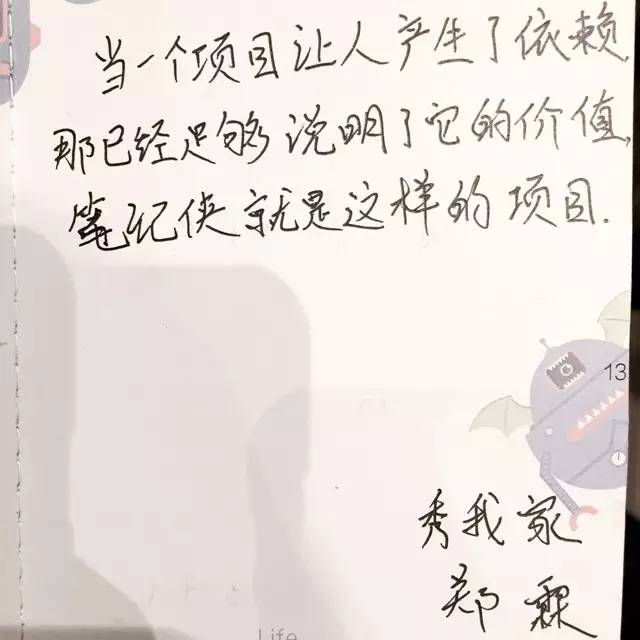 当一个项目让人产生了依赖,
那已经足够说明了它的价值,
笔记侠就是这样的项目.
13
秀我家
郑霖
Life